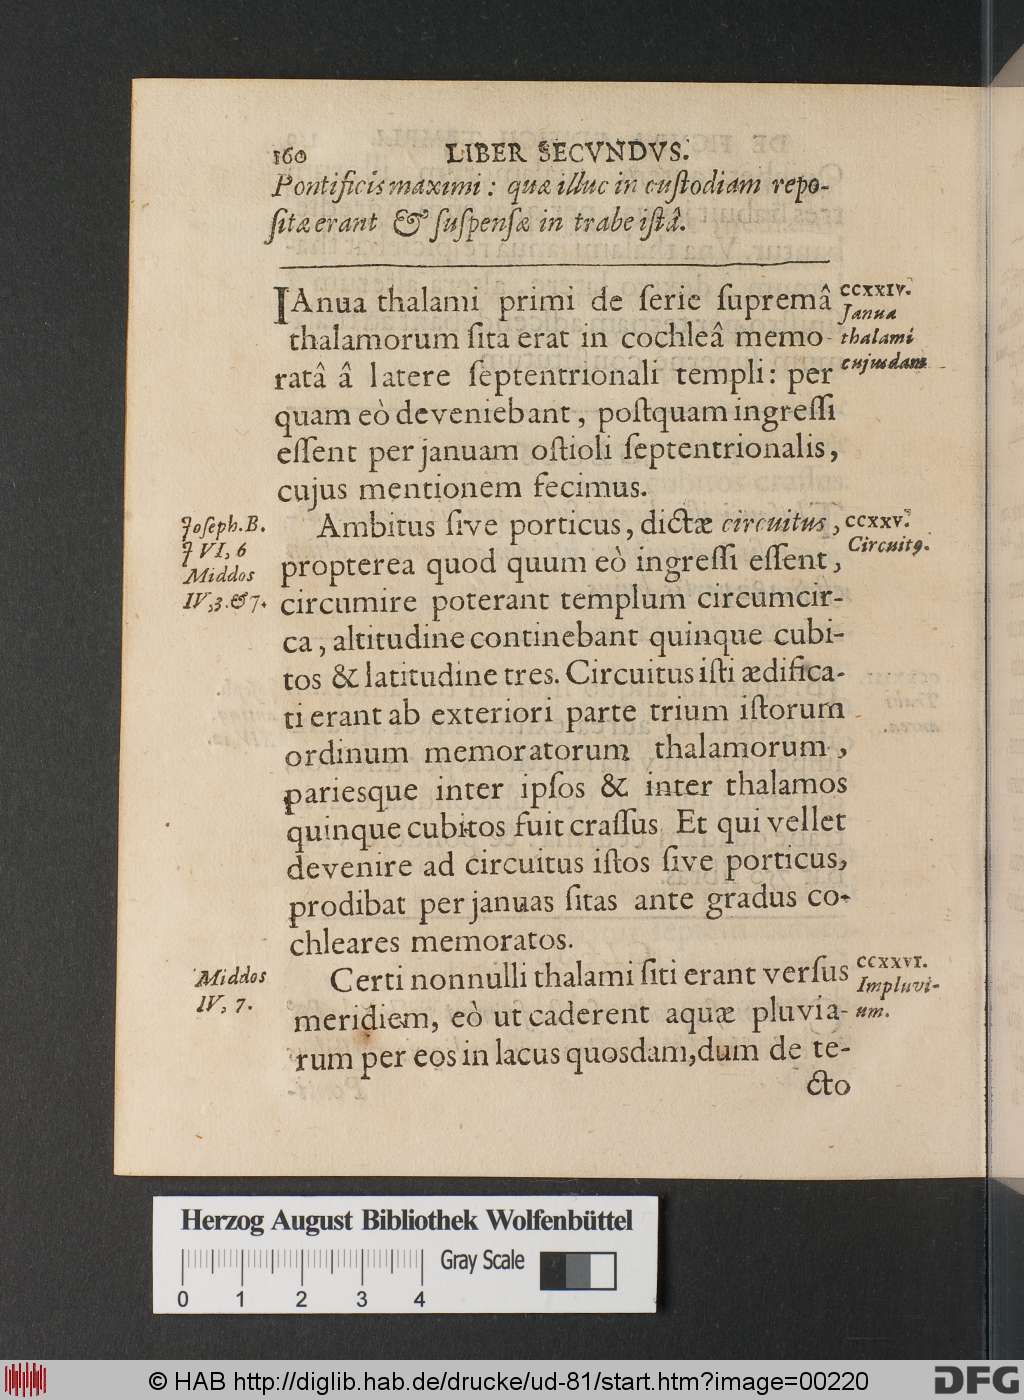 160 LIBER SECVNDVS.
Pontificis maximi: quæ illuc in cuſtodiam repo-
ſitæ erant & ſuſpenſæ in trabe iſtâ.
IAnua thalami primi de ſerie ſupremâ
thalamorum ſita erat in cochleâ memo-
ratâ â latere ſeptentrionali templi: per
quam eò deveniebant, poſtquam ingreſſi
eſſent per januam oſtioli ſeptentrionalis,
cujus mentionem fecimus.
CCXXIV.
Janua
thalami
cujusdam
Ambitus ſive porticus, dictæ circuitus,
propterea quod quum eò ingreſſi eſſent,
circumire poterant templum circumcir-
ca, altitudine continebant quinque cubi-
tos & latitudine tres. Circuitus iſti ædifica-
ti erant ab exteriori parte trium iſtorum
ordinum memoratorum thalamorum,
pariesque inter ipſos & inter thalamos
quinque cubitos fuit craſſus Et qui vellet
devenire ad circuitus iſtos ſive porticus,
prodibat per januas ſitas ante gradus co-
chleares memoratos.
Joſeph. B.
J VI, 6
Middos
IV, 3. & 7.
CCXXV.
Circuitꝰ.
Certi nonnulli thalami ſiti erant verſus
meridiem, eò ut caderent aquæ pluvia-
rum per eos in lacus quosdam, dum de te-
cto
Middos
IV, 7.
CCXXVI.
Impluvi-
um.
Herzog August Bibliothek Wolfenbüttel
Gray Scale
0 1 2 3 4
© HAB http://diglib.hab.de/drucke/ud-81/start.htm?image=00220
DFG